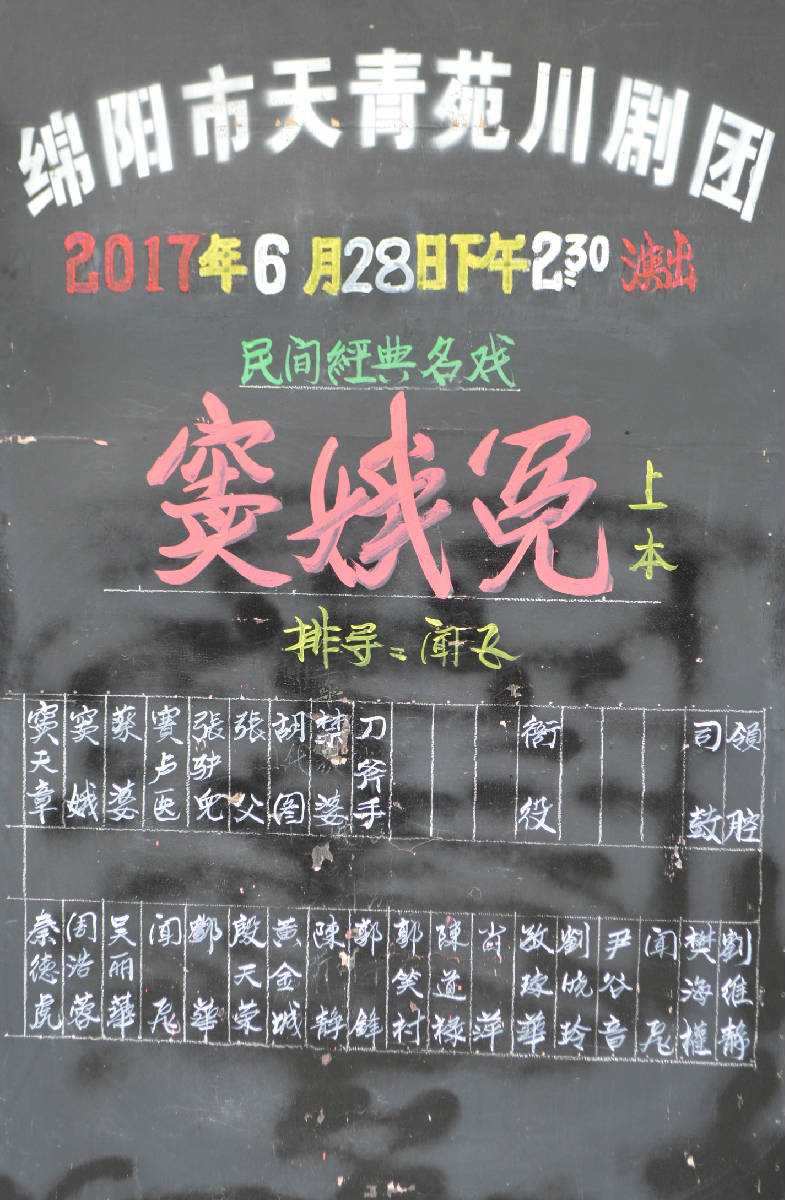 绵阳市天青苑川剧团
2017年6月28日下午2:30演出
民间經典名戏
窦娥冤 上本
排导：闻飞
窦天章 窦娥 蔡婆 賽卢医 張驴児 張父 胡图 禁婆 刀斧手 衙役 司鼓 領腔
秦德虎 周浩蓉 吴丽華 闻尨 鄧華 殷天荣 黄金城 陳静 郭鋒 郭笑村 陳道禄 肖萍 敬瓊華 劉晓玲 尹谷音 闻尨 樊海權 劉维静